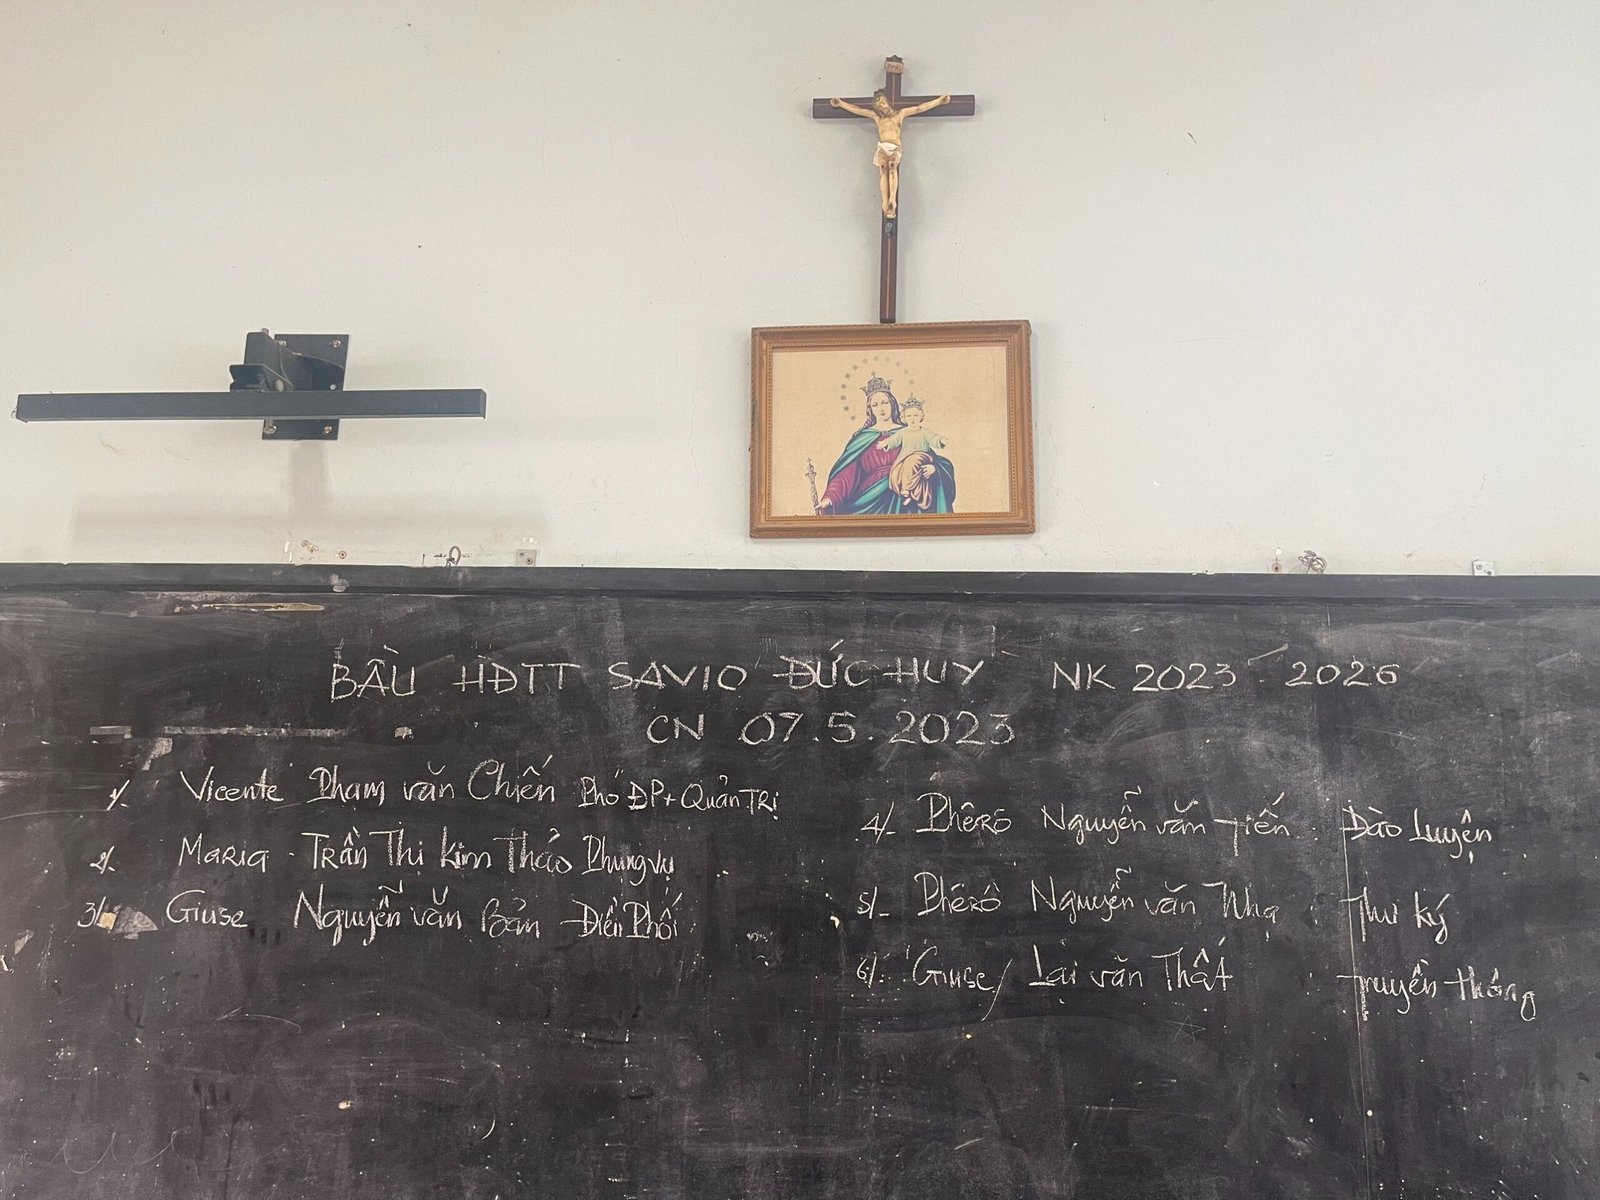 BẦU HĐTT SAVIO ĐỨC HUY NK 2023 - 2026
CN 07.5.2023
1/. Vicente Phạm văn Chiến Phó ĐP + Quản Trị
2/. Maria - Trần Thị Kim Thảo Phụng vụ
3/. Giuse Nguyễn văn Bản Điều Phối
4/- Phêrô Nguyễn văn Tiến Đào Luyện
5/- Phêrô Nguyễn văn Nhạ Thư ký
6/- Giuse / Lại văn Thất truyền thông